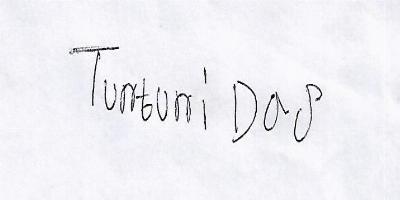 Tuntuni Das